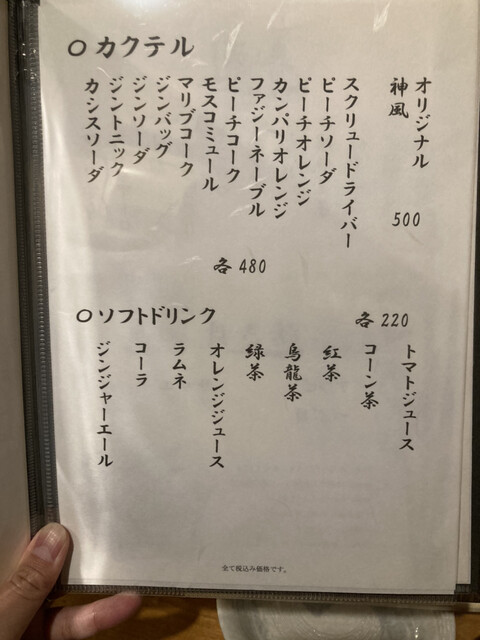 ○カクテル
オリジナル
神風
500
スクリュードライバー
ピーチソーダ
ピーチオレンジ
カンパリオレンジ
ファジーネーブル
ピーチコーク
モスコミュール
マリブコーク
ジンバッグ
ジンソーダ
ジントニック
カシスソーダ
各480
○ソフトドリンク
各220
トマトジュース
コーン茶
紅茶
烏龍茶
緑茶
オレンジジュース
ラムネ
コーラ
ジンジャーエール
全て税込み価格です。